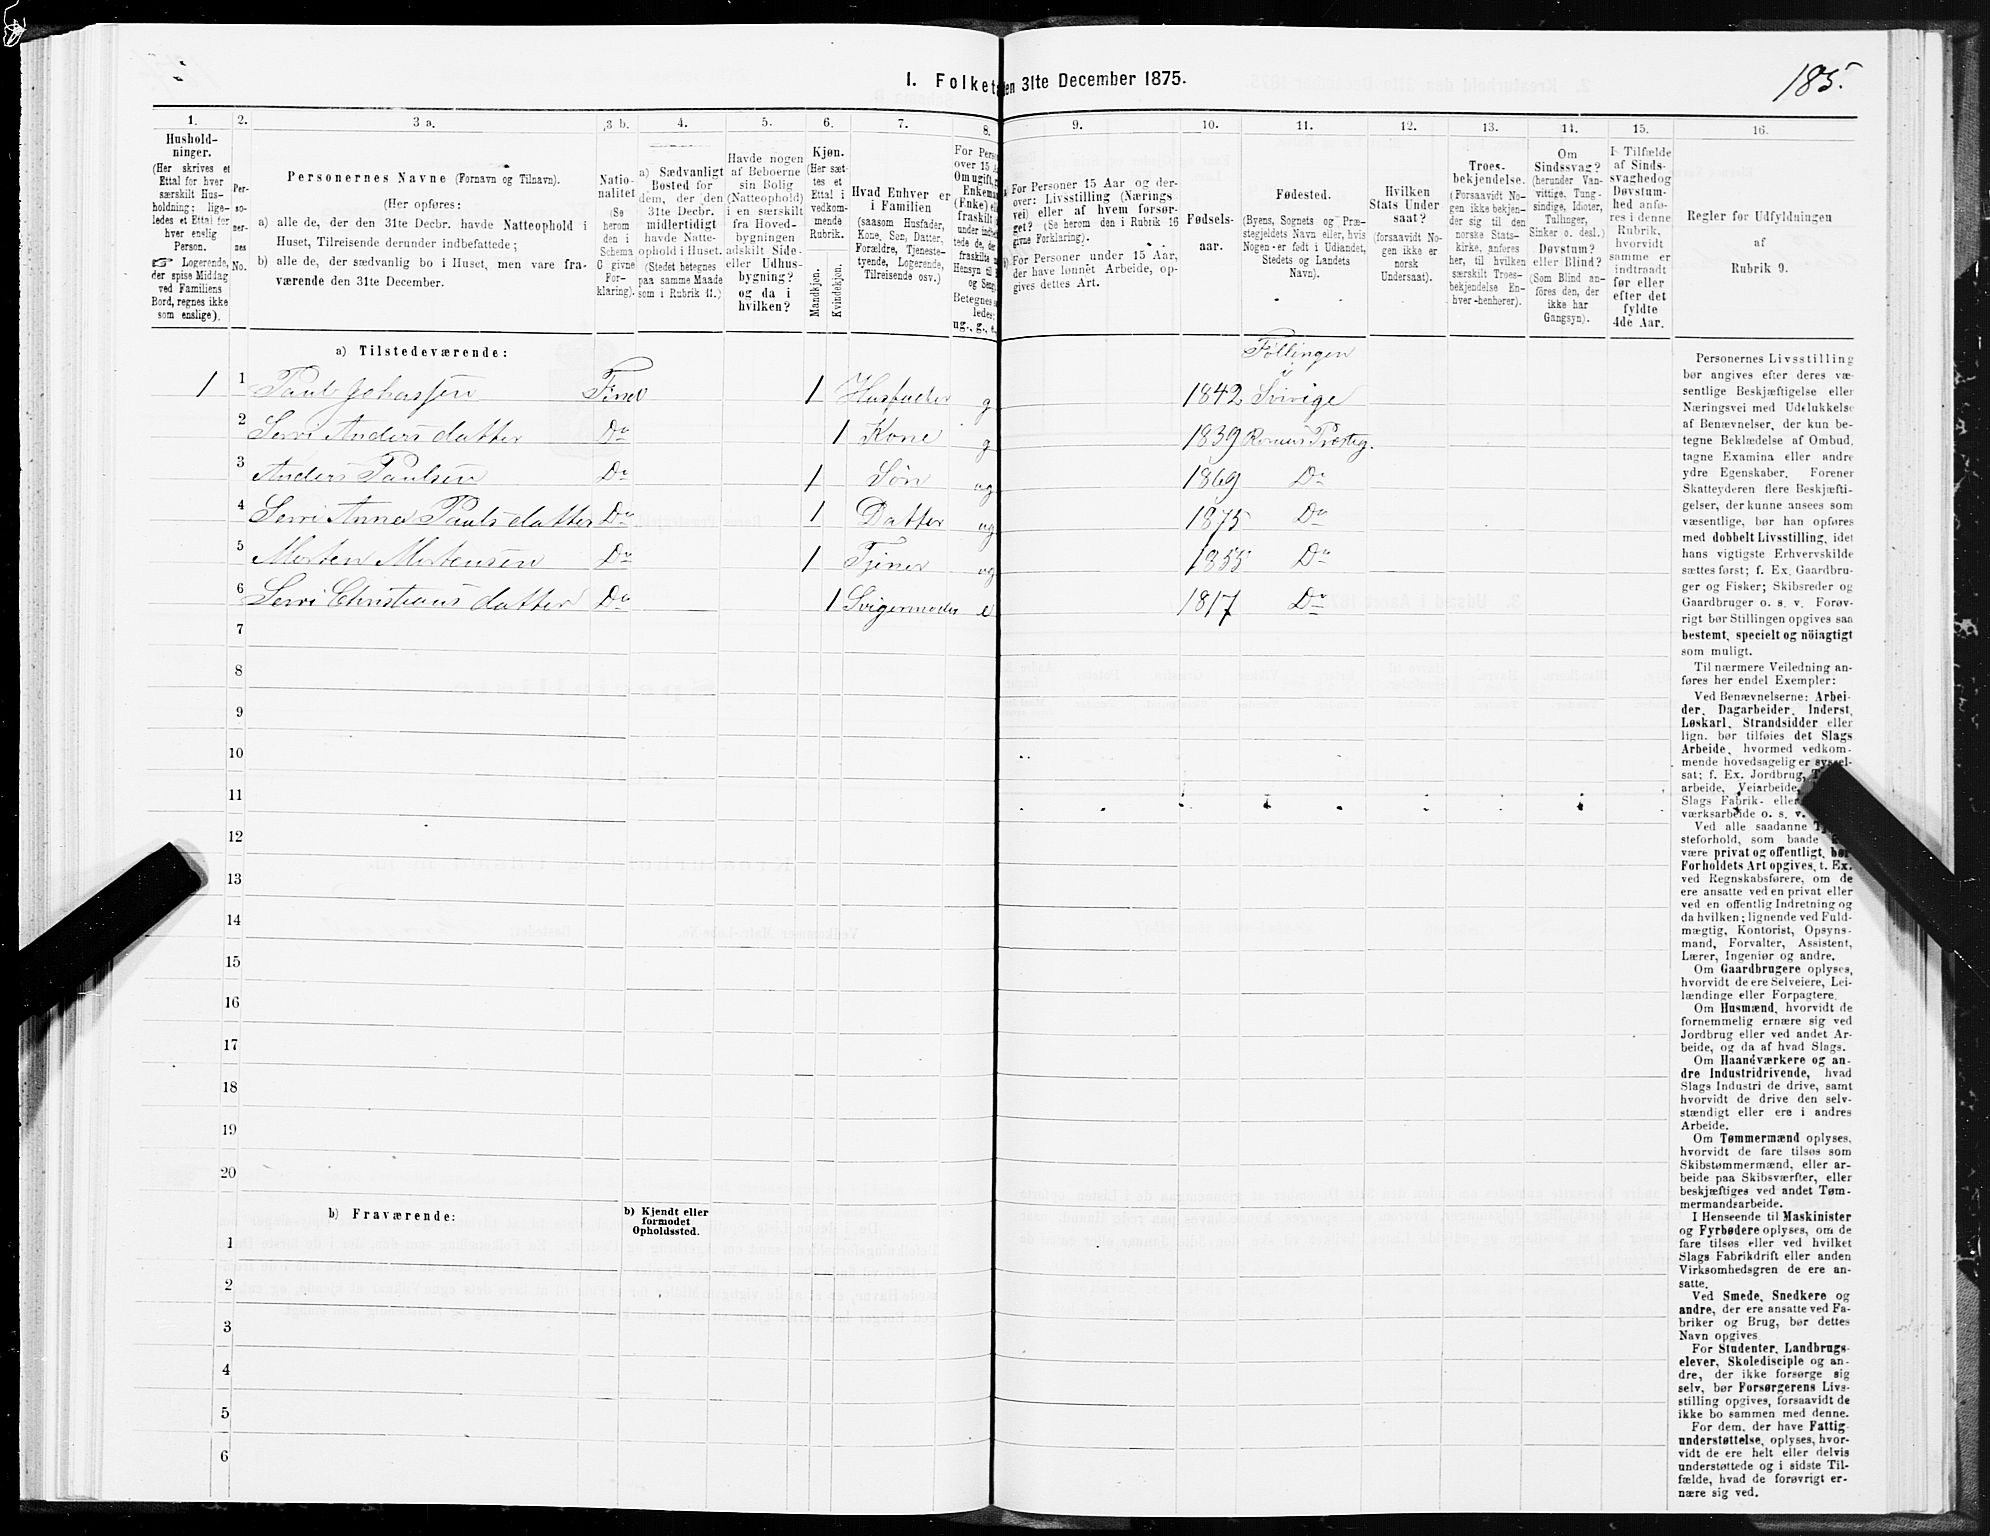 185.
I. Folket
en 31te December 1875.
1. 2. 3 a. 3 b. 4. 5. 6. 7. 8. 9. 10. 11. 12. 13. 14. 15. 16.
Hushold-
ninger.
(Her skrives et
Ettal for hver
særskilt Hus-
holdning; lige-
ledes et Ettal for
hver enslig
Person.
☞ Logerende,
der spise Middag
ved Familiens
Bord, regnes ikke
som enslige).
Per-
so-
ner-
nes
No.
Personernes Navne (Fornavn og Tilnavn).
(Her opføres:
a) alle de, der den 31te Decbr. havde Natteophold i
Huset, Tilreisende derunder indbefattede;
b) alle de, der sædvanlig bo i Huset, men vare fra-
værende den 31te December.
Natio-
nalitet
(Se
herom
den i
Schema
G givne
For-
klaring).
a) Sædvanligt
Bosted for
dem, der den
31te Decbr.
midlertidigt
havde Natte-
ophold i Huset.
(Stedet betegnes
paa samme Maade
som i Rubrik 11.)
Havde nogen
af Beboerne
sin Bolig
(Natteophold)
i en særskilt
fra Hoved-
bygningen
adskilt Side-
eller Udhus-
bygning?
og da i
hvilken?
Kjøn.
(Her sæt-
tes et
Ettal i
vedkom-
mende
Rubrik.
Mandkjøn.
Kvindekjøn.
Hvad Enhver er
i Familien
(saasom Husfader,
Kone, Søn, Datter,
Forældre, Tjeneste-
tyende, Logerende,
Tilreisende osv.)
For Perso
over 15 A
Om ugift, g
Enkeman
(Enke) elle
fraskilt
under indbe
tede de, de
fraskilte
Hensyn til B
og Seng
Betegnes s
ledes:
ug., g., e.
For Personer 15 Aar og der-
over: Livsstilling (Nærings
vei) eller af hvem forsør-
get? (Se herom den i Rubrik 16
givne Forklaring).
For Personer under 15 Aar,
der have lønnet Arbeide, op-
gives dettes Art.
Fødsels-
aar.
Fødested.
(Byens, Sognets og Præ-
stegjeldets Navn eller, hvis
Nogen er født i Udlandet,
Stedets og Landets
Navn).
Hvilken
Stats Under
saat?
(forsaavidt No-
gen ikke er
norsk
Undersaat).
Troes-
bekjendelse.
(Forsaavidt No-
gen ikke bekjen-
der sig til den
norske Stats-
kirke, anføres
her, til hvilken
særskilt Troes-
bekjendelse En-
hver henhører).
Om
Sindssvag?
(herunder Van-
vittige, Tung-
sindige, Idioter,
Tullinger,
Sinker o. desl.)
Døvstum?
eller Blind?
(Som Blind an-
føres den, der
ikke har
Gangsyn).
I Tilfælde
af Sinds-
svaghed og
Døvstum-
hed anfø-
res i denne
Rubrik,
hvorvidt
samme er
indtraadt
før eller
efter det
fyldte
4de Aar.
Regler for Udfyldningen
af
Rubrik 9.
a) Tilstedeværende:
Föllingen
i
1 1 Paul Johassen Find 1 Husfader g 1842 Sverige
2 Serri Anders datter Do 1 Kone g 1839 Præsteg.
3 Anders Paulsen Do 1 Søn ug 1869 Do
4 Serri Anna Pauls datter Do 1 Datter ug 1875 Do
5 Morten Mortensen Do 1 Tjener ug 1855 Do
6 Serri Christians datter Do 1 Svigermoder e 1817 Do
7
8
9
10
11
12
13
14
15
16
17
18
19
20
b) Fraværende:
b) Kjendt eller
formodet
Opholdssted.
1
2
3
4
5
6
Personernes Livsstilling
bør angives efter deres væ-
sentlige Beskjæftigelse eller
Næringsvei med Udelukkelse
af Benævnelser, der kun be-
tegne Beklædelse af Ombud,
tagne Examina eller andre
ydre Egenskaber. Forener
Skatteyderen flere Beskjæfti-
gelser, der kunne ansees som
væsentlige, bør han opføres
med dobbelt Livsstilling, idet
hans vigtigste Erhvervskilde
sættes først; f. Ex. Gaardbru-
ger og Fisker; Skibsreder og
Gaardbruger o. s. v. Forøv-
rigt bør Stillingen opgives saa
bestemt, specielt og nöiagtigt
som muligt.
Til nærmere Veiledning an-
føres her endel Exempler:
Ved Benævnelserne: Arbei-
der, Dagarbeider, Inderst,
Løskarl, Strandsidder eller
lign. bør tilføies det Slags
Arbeide, hvormed vedkom-
mende hovedsagelig er syssel-
sat; f. Ex. Jordbrug,
arbeide, Veiarbeide,
Slags Fabrik- eller
værksarbeide o. s. v.
Ved alle saadanne
steforhold, som baade
være privat og offentligt, bør
Forholdets Art opgives, t. Ex.
ved Regnskabsførere, om de
ere ansatte ved en privat eller
ved en offentlig Indretning og
da hvilken; lignende ved Fuld-
mægtig, Kontorist, Opsyns-
mand, Forvalter, Assistent,
Lærer, Ingeniør og andre.
Om Gaardbrugere oplyses,
hvorvidt de ere Selveiere, Lei-
lændinge eller Forpagtere.
Om Husmænd, hvorvidt de
fornemmelig ernære sig ved
Jordbrug eller ved andet Ar-
beide, og da af hvad Slags.
Om Haandværkere og an-
dre Industridrivende, hvad
Slags Industri de drive, samt
hvorvidt de drive den selv-
stændigt eller ere i andres
Arbeide.
Om Tømmermænd oplyses,
hvorvidt de fare tilsøs som
Skibstømmermænd, eller ar-
beide paa Skibsværfter, eller
beskjæftiges ved andet Tøm-
mermandsarbeide.
I Henseende til Maskinister
og Fyrbødere oplyses, om de
fare tilsøs eller ved hvilket
Slags Fabrikdrift eller anden
Virksomhedsgren de ere an-
satte.
Ved Smede, Snedkere og
andre, der ere ansatte ved Fa-
briker og Brug, bør dettes
Navn opgives
For Studenter, Landbrugs-
elever, Skoledisciple og an-
dre, der ikke forsørge sig
selv, bør Forsørgerens Livs-
stilling opgives, forsaavidt de
ikke bo sammen med denne.
For dem, der have Fattig-
understøttelse, oplyses, hvor-
vidt de ere helt eller delvis
understøttede og i sidste Til-
fælde, hvad de forøvrigt er-
nære sig ved.